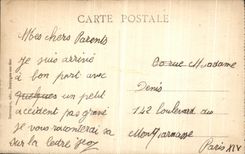 CARTE POSTALE
Mes chers Parents
je suis arrivé
à bon port avec
quelques un petit
accident pas grave
je vous raconterai sa
sur la lettre
Madame
Denis
142 boulevard du
Montparnasse
Paris XIV